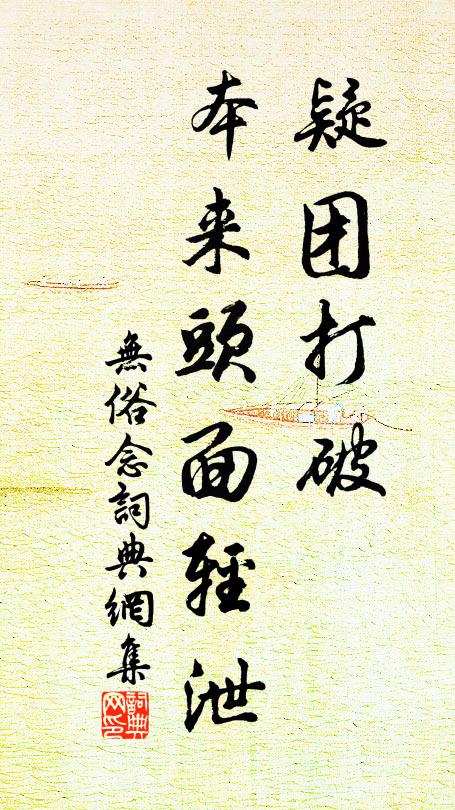 疑团打破
本来頭面輕泄
無俗念詞典網集
詞典
网印